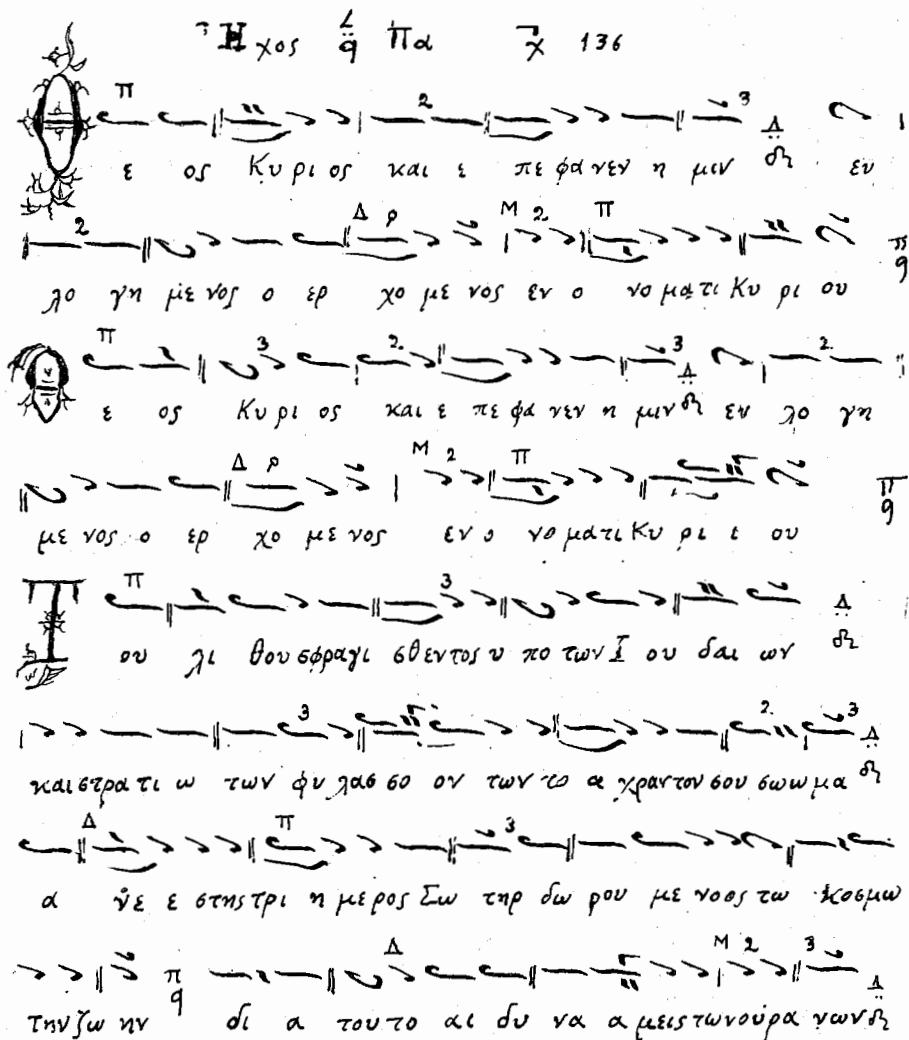 Ἦχος q̈ Πα χ 136
Θ ε ος Κυ ρι ος και ε πε φα νεν η μιν ευ
λο γη με νος ο ερ χο με νος εν ο νο μα τι Κυ ρι ου
Θ ε ος Κυ ρι ος και ε πε φα νεν η μιν ευ λο γη
με νος ο ερ χο με νος εν ο νο μα τι Κυ ρι ι ου
Τ ου λι θου σφραγι σθεντος υ πο των Ι ου δαι ων
και στρα τι ω των φυ λασ σο ον των το α χραντον σου σωωμα
α νε ε στης τρι η μερος Σω τηρ δω ρου με νοος τω κοσμω
την ζω ην δι α του το αι δυ να α μεις των ουρα νων